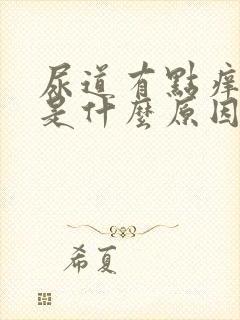 尿道有點痒
是什麽原因
希夏